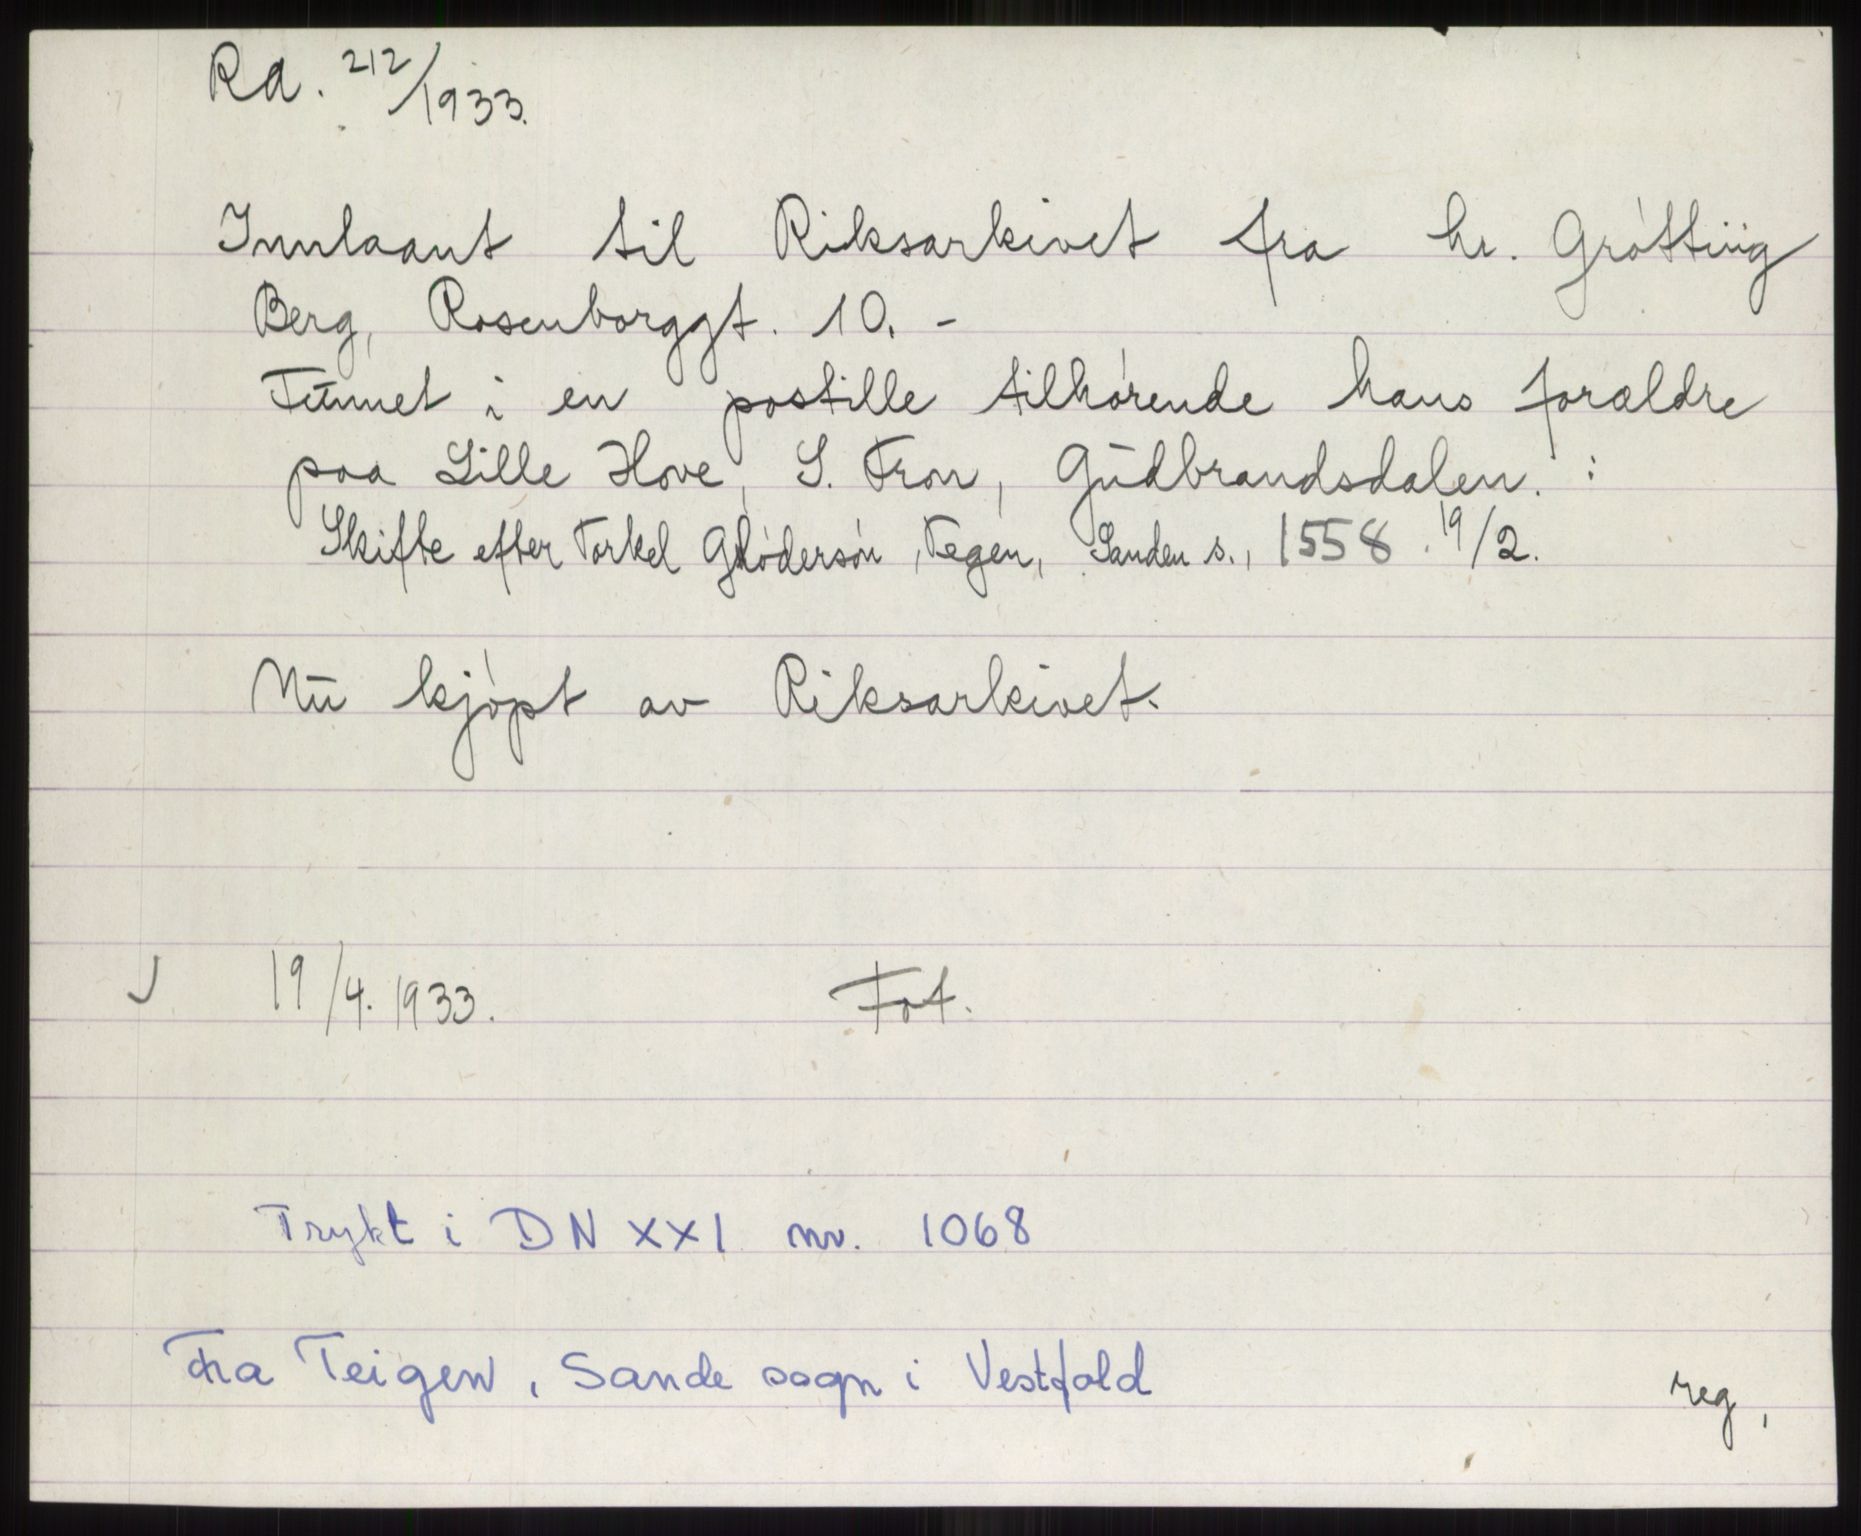 Ra. 212/1933.
Innlaant til Riksarkivet fra hr. Grøtting
Berg, Rosenborggt. 10. -
Funnet i en postille tilhørende hans forældre
paa Lille Hove, S. Fron, Gudbrandsdalen. :
Skifte efter Torkel Glødersøn, Tegen, Sanden s., 1558 19/2.
Nu kjøpt av Riksarkivet.
19/4. 1933. Fot.
Trykt i DN XXI nr. 1068
Fra Teigen, Sande sogn i Vestfold
reg,